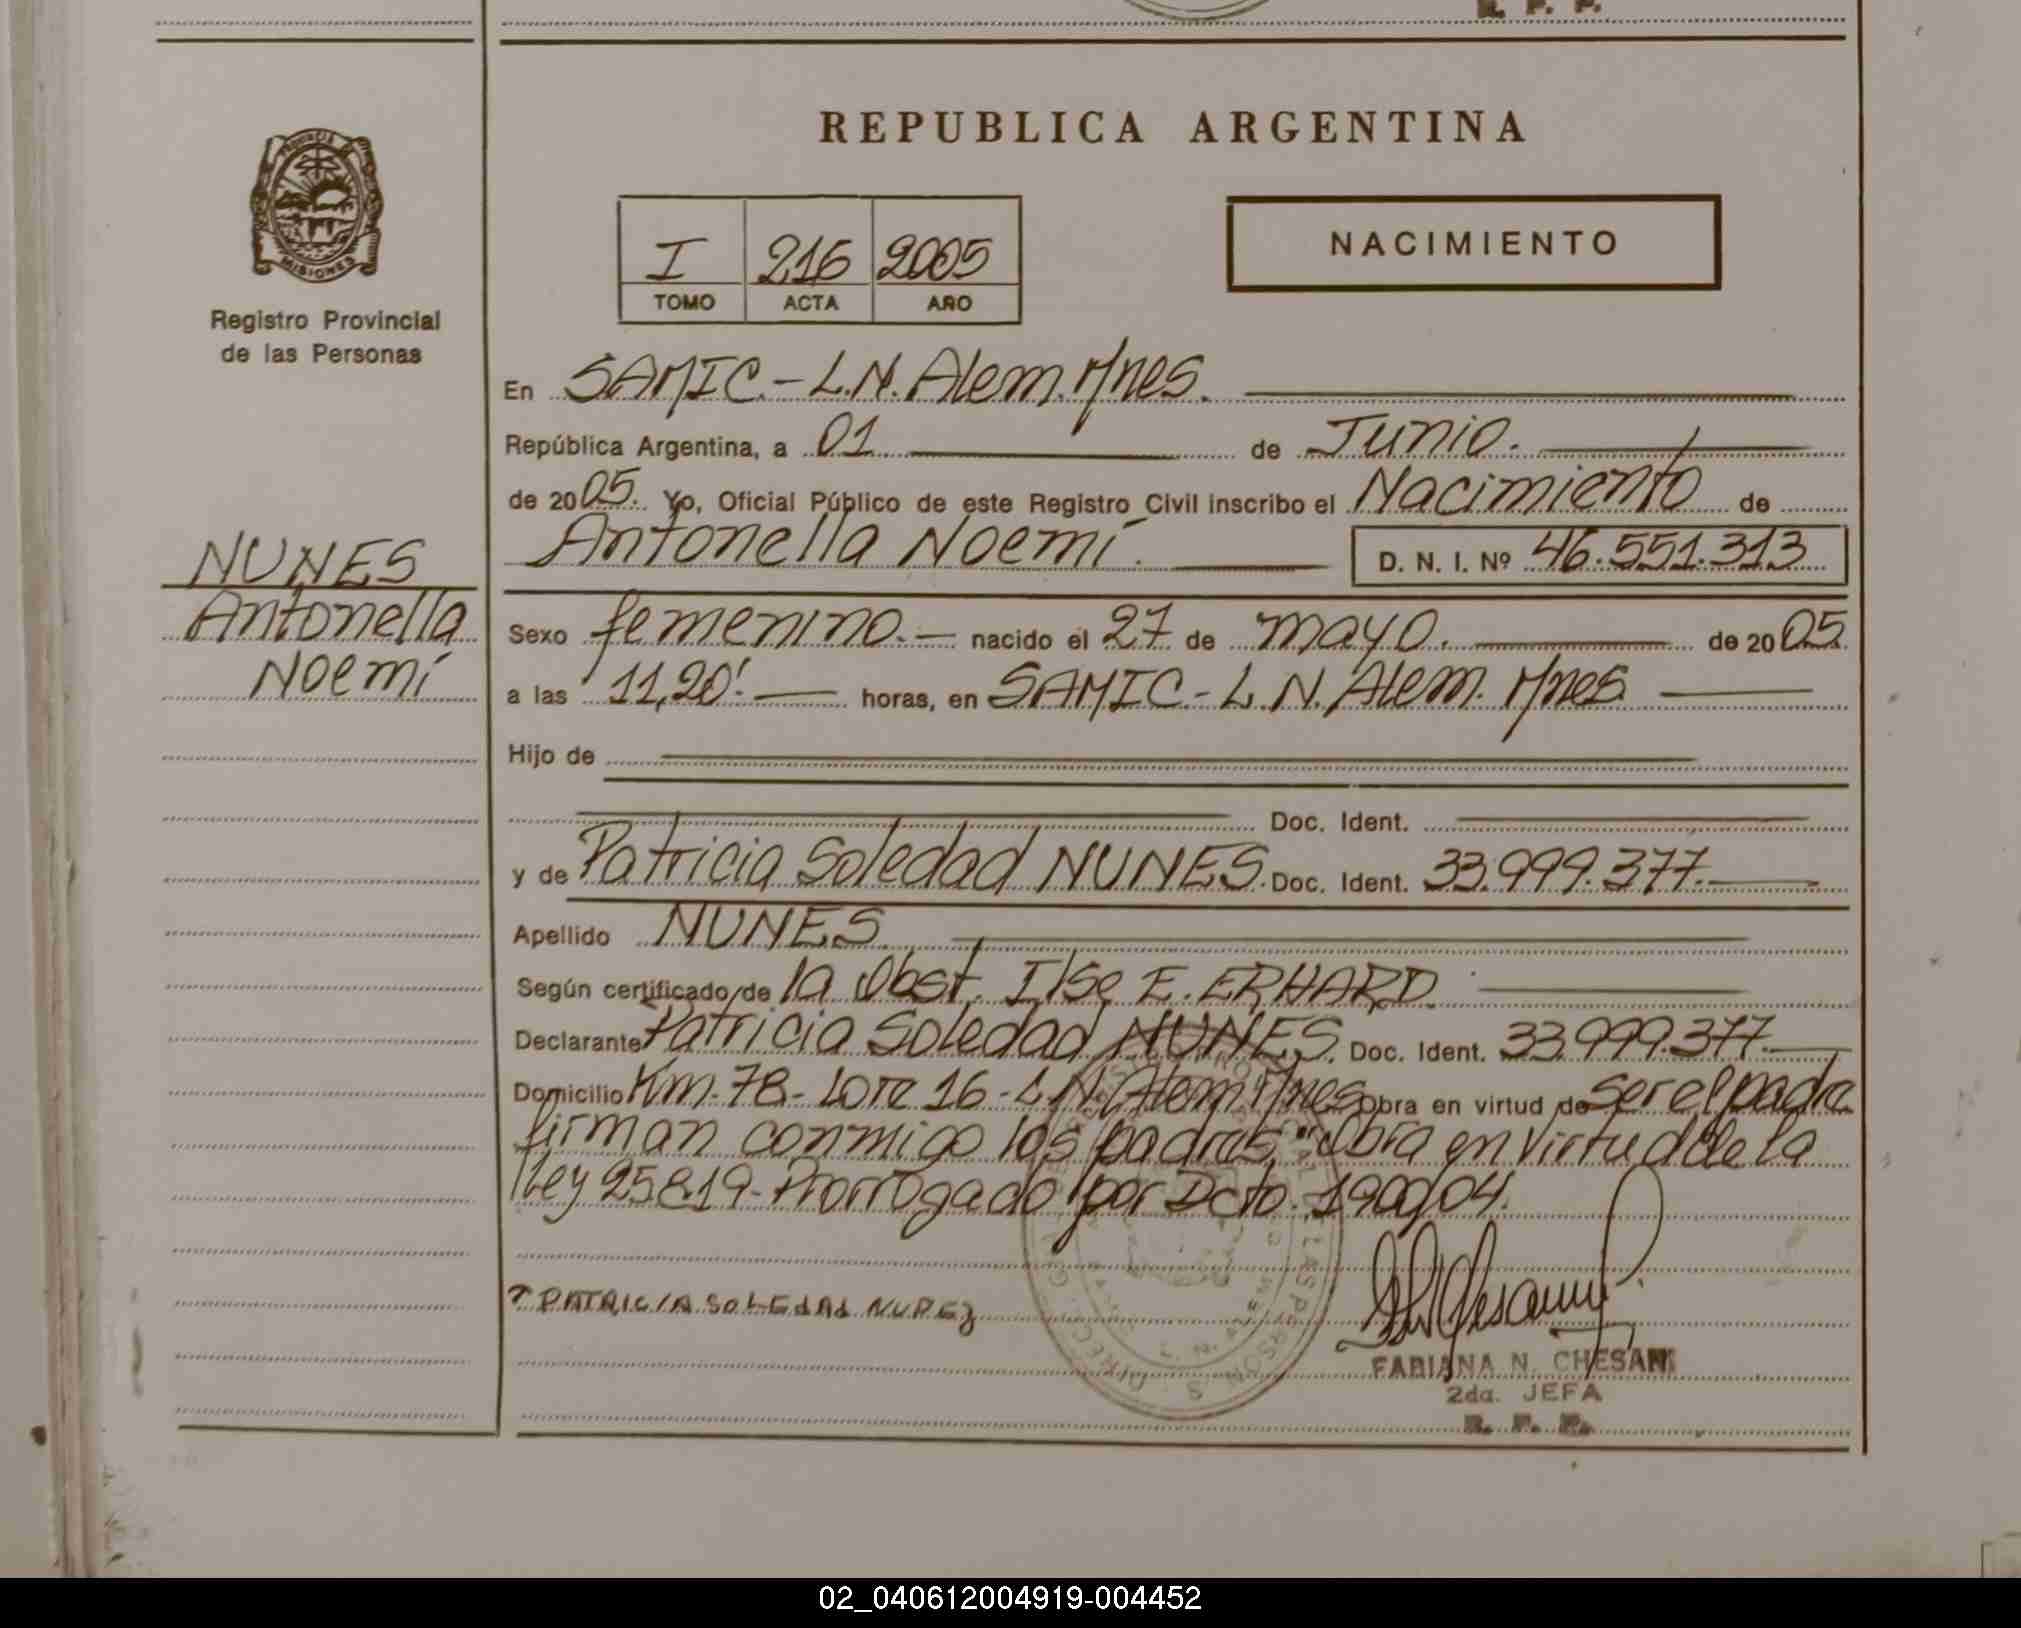 R. P. P.
REPUBLICA ARGENTINA
PROVINCIA DE
MISIONES
Registro Provincial
de las Personas
I 216 2005
TOMO ACTA AÑO
NACIMIENTO
En SAMIC.- L.N. Alem. Mnes.
República Argentina, a 01 de Junio.
de 2005. Yo, Oficial Público de este Registro Civil inscribo el Nacimiento de
Antonella Noemí. D. N. I. Nº 46.551.313
NUNES
Antonella
Noemí
Sexo femenino.- nacido el 27 de mayo. de 2005.
a las 11,20'. horas, en SAMIC.- L.N. Alem. Mnes.
Hijo de
Doc. Ident.
y de Patricia Soledad NUNES. Doc. Ident. 33.999.377.
Apellido NUNES
Según certificado de la Obst. Ilse E. ERHARD.
Declarante Patricia Soledad NUNES. Doc. Ident. 33.999.377.
Domicilio Km. 78- Lote 16 - L.N. Alem Mnes Obra en virtud de ser el padre
firman conmigo los padres, "Obra en virtud de la
Ley 25819- Prorrogado por Dcto. 1900/04.
PATRICIA SOLEdAd NUÑEz
FABIANA N. CHESANI
2da. JEFA
R. P. P.
02_040612004919-004452